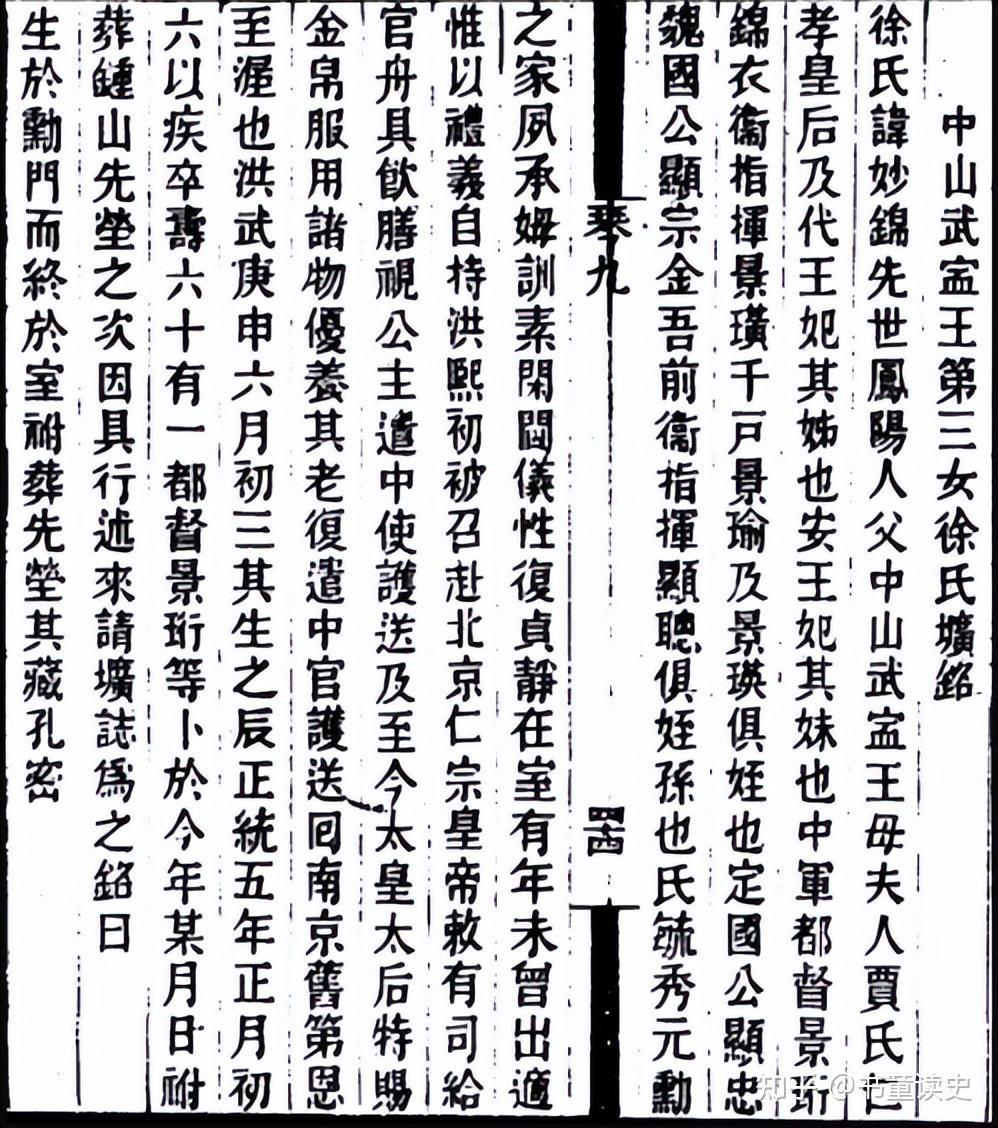 中山武寍王第三女徐氏壙銘
徐氏諱妙錦先世鳳陽人父中山武寍王母夫人賈氏仁
孝皇后及代王妃其姊也安王妃其妹也中軍都督景珩
錦衣衞指揮景璜千戸景瑜及景瑛俱姪也定國公顯忠
魏國公顯宗金吾前衞指揮顯聰俱姪孫也氏毓秀元勳
卷九
四十四
之家夙承姆訓素閑閫儀性復貞靜在室有年未曾出適
惟以禮義自持洪熙初被召赴北京仁宗皇帝敕有司給
官舟具飲膳視公主遣中使護送及至今太皇太后特賜
金帛服用諸物優養其老復遣中官護送囘南京舊第恩
至渥也洪武庚申六月初三其生之辰正統五年正月初
六以疾卒壽六十有一都督景珩等卜於今年某月日祔
葬鍾山先塋之次因具行述來請壙誌爲之銘曰
生於勳門而終於室祔葬先塋其藏孔密
知乎 @书童读史